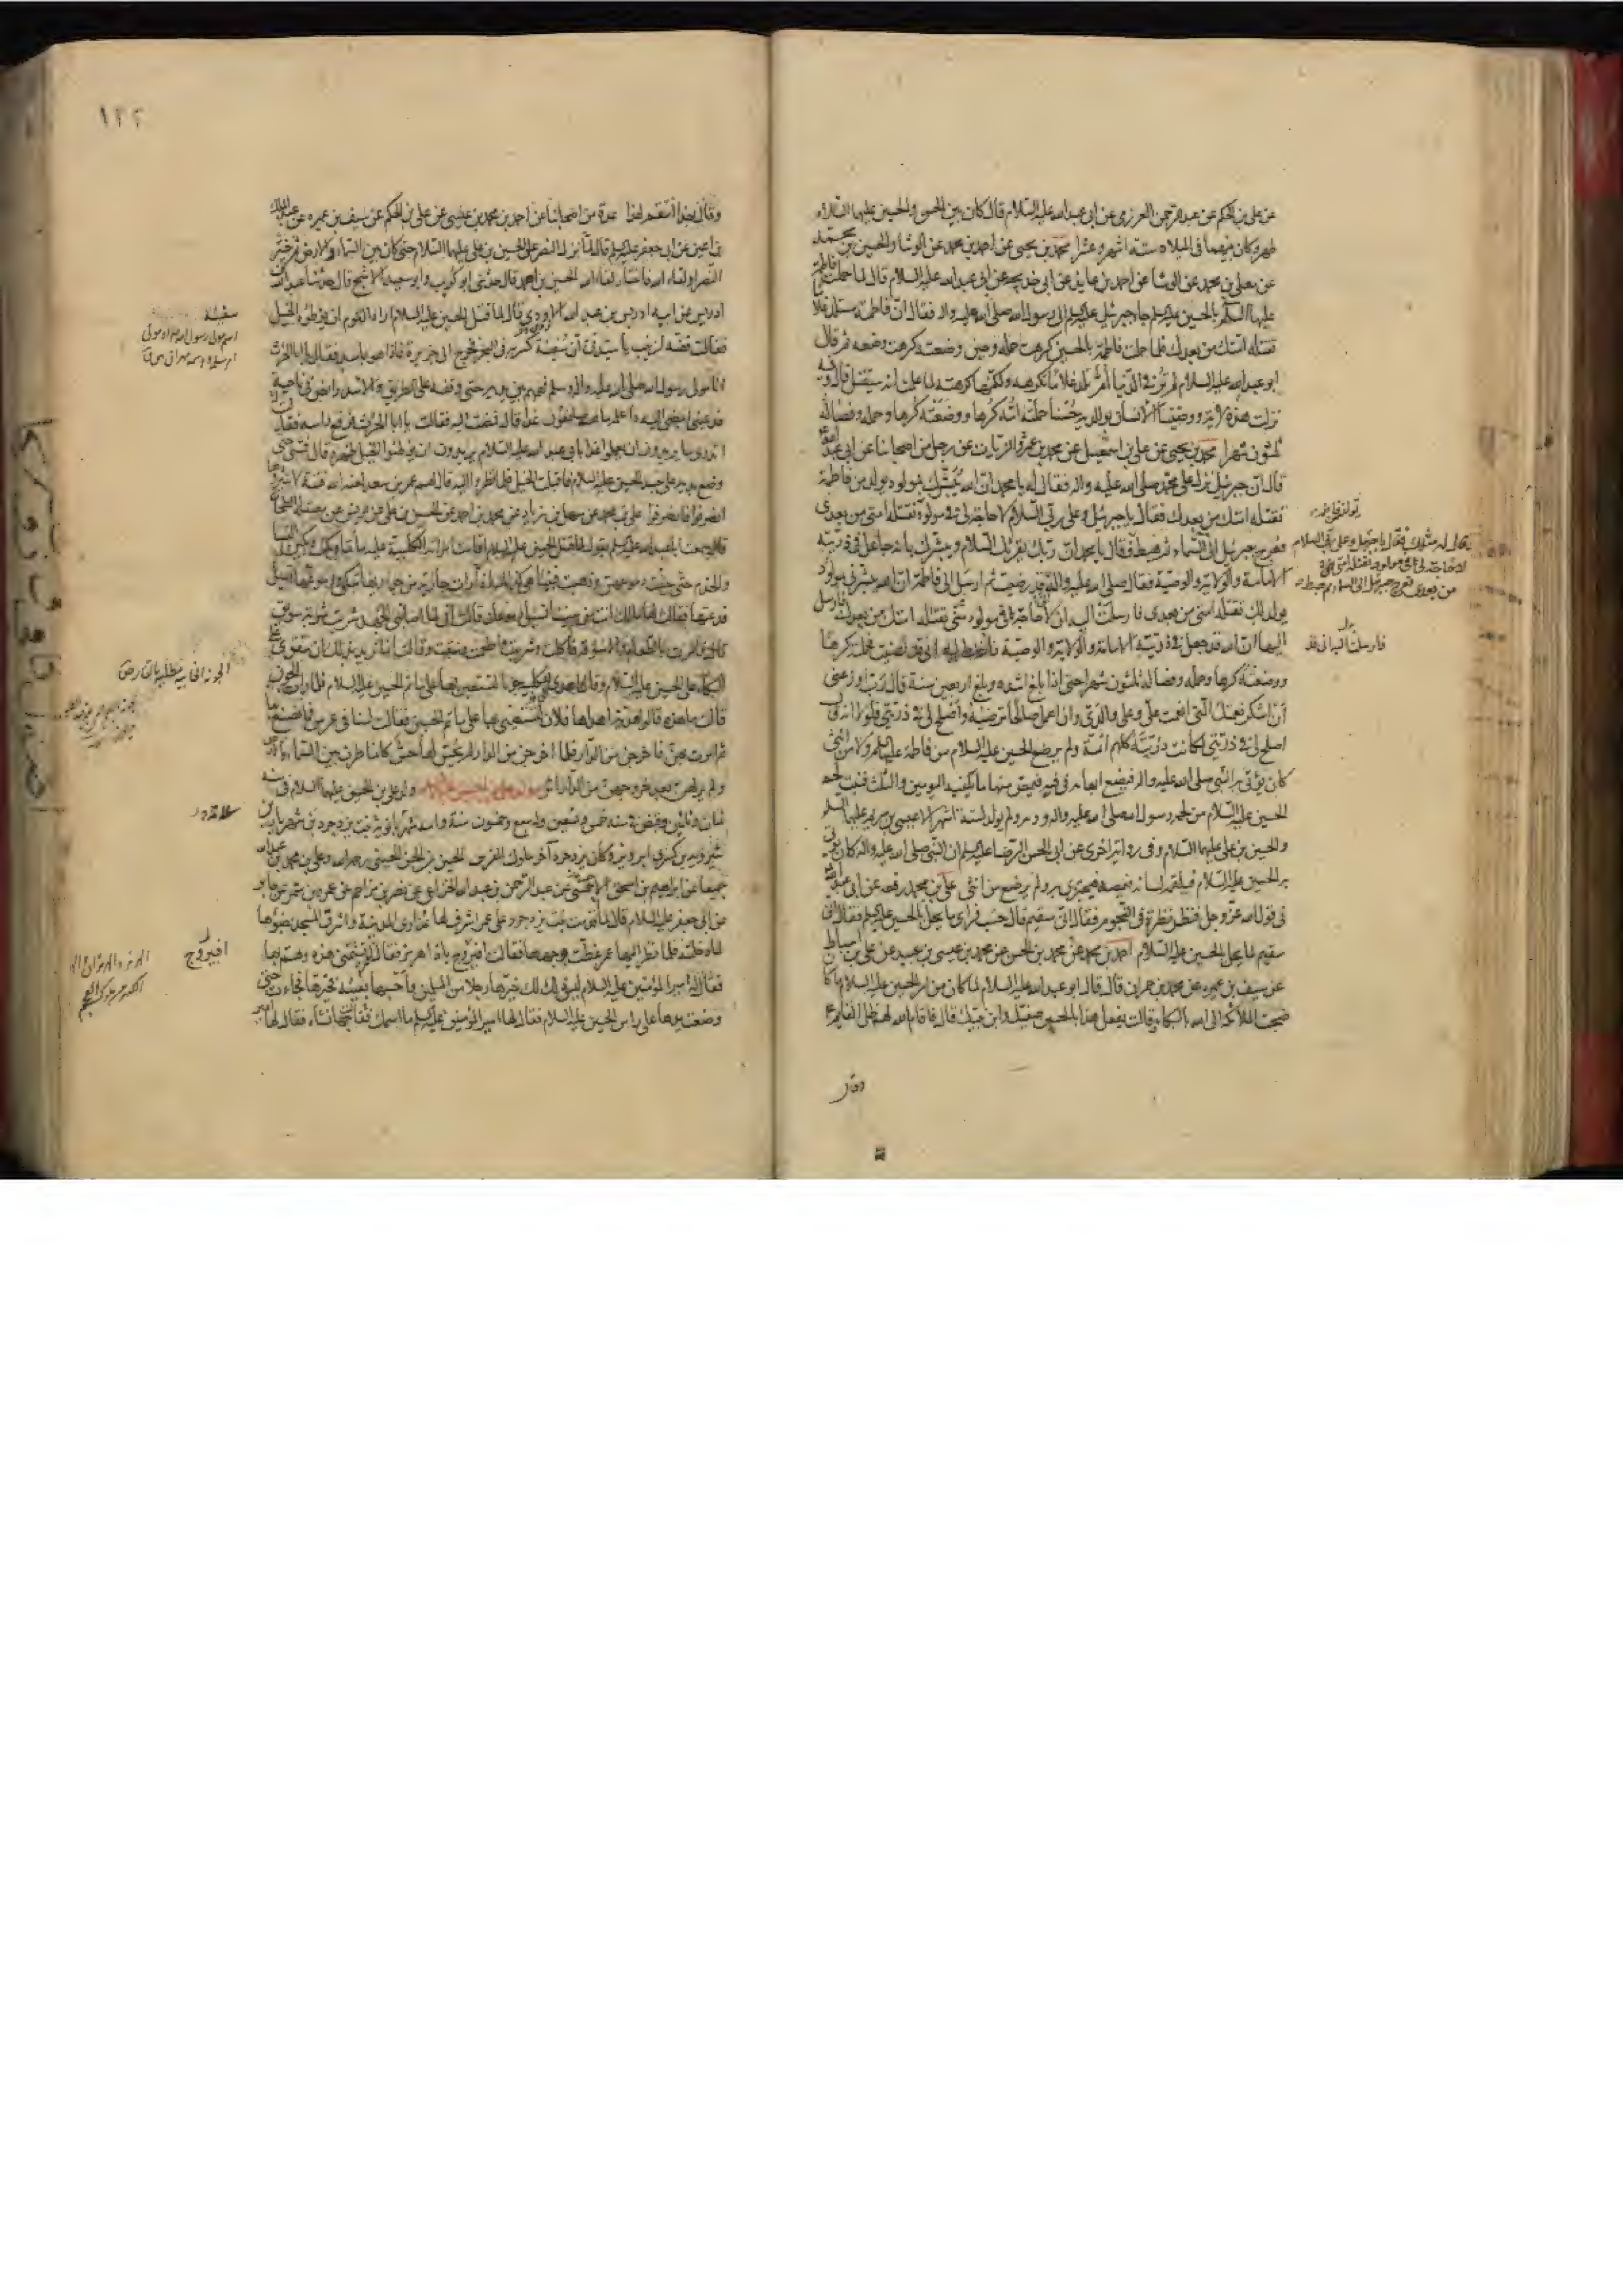 عن علي بن الحكم عن عبد الرحمن العرزمي عن ابي عبد الله عليه السلام قال كان بين الحسن والحسين عليهما السلام
طهر وكان بينهما في الميلاد ستة اشهر وعشرا محمد بن يحيى عن احمد بن محمد عن الوشا والحسين بن محمد
عن معلى بن محمد عن الوشا عن احمد بن عايذ عن ابي خديجه عن ابي عبد الله عليه السلام قال لما حملت فاطمة
عليها السلم بالحسين عليه السلم جاء جبرئيل عليه السلم الى رسول الله صلى الله عليه واله فقال ان فاطمة ستلد غلاما
تقتله امتك من بعدك فلما حملت فاطمة بالحسين كرهت حمله وحين وضعته كرهت وضعه ثم قال
ابو عبد الله عليه السلام لم تر في الدنيا ام تلد غلاما تكرهه ولكنها كرهته لما علمت انه سيقتل قال وفيه
نزلت هذه الاية ووصينا الانسان بوالديه حسنا حملته امه كرها ووضعته كرها وحمله وفصاله
ثلثون شهرا محمد بن يحيى عن علي بن اسمعيل عن محمد بن عمرو الزيات عن رجل من اصحابنا عن ابي عبد الله
قال ان جبرئيل نزل على محمد صلى الله عليه واله فقال له يا محمد ان الله يبشرك بمولود يولد من فاطمة
تقتله امتك من بعدك فقال يا جبرئيل وعلى ربي السلام لا حاجة لي في مولود تقتله امتي من بعدي
فعرج جبرئيل الى السماء ثم هبط فقال يا محمد ان ربك يقرئك السلام ويبشرك بانه جاعل في ذريته
الامامة والولاية والوصية فقال صلى الله عليه واله قد رضيت ثم ارسل الى فاطمة ان الله يبشرني بمولود
يولد لك تقتله امتي من بعدي فارسلت اليه ان لا حاجة لي في مولود مني تقتله امتك من بعدك فارسل
اليها ان الله قد جعل في ذريته الامامة والولاية والوصية فارسلت اليه اني قد رضيت فحملته كرها
ووضعته كرها وحمله وفصاله ثلثون شهرا حتى اذا بلغ اشده وبلغ اربعين سنة قال رب اوزعني
ان اشكر نعمتك التي انعمت علي وعلى والدي وان اعمل صالحا ترضيه واصلح لي في ذريتي فلولا انه قال
اصلح لي في ذريتي لكانت ذريته كلهم ائمة ولم يرضع الحسين عليه السلام من فاطمة عليها السلم ولا من انثى
كان يؤتى به النبي صلى الله عليه واله فيضع ابهامه في فيه فيمص منها ما يكفيه اليومين والثلث فنبت لحم
الحسين عليه السلام من لحم رسول الله صلى الله عليه واله ودمه ولم يولد لستة اشهر الا عيسى بن مريم عليهما السلم
والحسين بن علي عليهما السلام وفي رواية اخرى عن ابي الحسن الرضا عليه السلم ان النبي صلى الله عليه واله كان يؤتى
به الحسين عليه السلام فيلقمه لسانه فيمصه فيجتزى به ولم يرضع من انثى علي بن محمد رفعه عن ابي عبد الله
في قول الله عز وجل فنظر نظرة في النجوم فقال اني سقيم قال حسب فراى ما يحل بالحسين عليه السلم فقال اني
سقيم لما يحل بالحسين عليه السلام احمد بن محمد عن محمد بن الحسن عن محمد بن عيسى بن عبيد عن علي بن اسباط
عن سيف بن عميره عن محمد بن حمران قال قال ابو عبد الله عليه السلام لما كان من امر الحسين عليه السلام ما كان
ضجت الملائكة الى الله بالبكاء وقالت يفعل هذا بالحسين صفيك وابن نبيك قال فاقام الله لهم ظل القائم ع
فقال له مثل ذلك فقال يا جبرئيل وعلى ربي السلام
لا حاجة لي في مولود تقتله امتي
من بعدي فعرج جبرئيل الى السماء ثم هبط
فارسلت اليه اني قد
وقال
١٢٢
وقال بهذا انتقم لهذا عدة من اصحابنا عن احمد بن محمد بن عيسى عن علي بن الحكم عن سيف بن عميره عن عبد الملك
بن اعين عن ابي جعفر عليه السلم قال لما نزل النصر على الحسين بن علي عليهما السلام حتى كان بين السماء والارض ثم خير
النصر او لقاء الله فاختار لقاء الله الحسين بن احمد قال حدثني ابو كريب وابو سعيد الاشج قال حدثنا عبد الله بن
ادريس عن ابيه ادريس بن عبد الله الاودي قال لما قتل الحسين عليه السلام اراد القوم ان يوطئوه الخيل
فقالت فضة لزينب يا سيدتي ان سفينة كسر به في البحر فخرج الى جزيرة فاذا هو باسد فقال يا ابا الحرث
انا مولى رسول الله صلى الله عليه واله وسلم فهمهم بين يديه حتى وقفه على الطريق والاسد رابض في ناحية
فدعيني امضي اليه واعلمه ما هم صانعون غدا قال فمضت اليه فقالت يا ابا الحرث فرفع راسه فقالت
اتدري ما يريدون ان يعملوا غدا بابي عبد الله عليه السلام يريدون ان يوطئوا الخيل ظهره قال فمشى حتى
وضع يديه على جسد الحسين عليه السلام فاقبلت الخيل فلما نظروا اليه قال لهم عمر بن سعد لعنه الله فتنة لا تثيروها
انصرفوا فانصرفوا علي بن محمد عن سهل بن زياد عن محمد بن احمد عن الحسن بن علي عن يونس عن مصقلة الطحان
قال سمعت ابا عبد الله عليه السلم يقول لما قتل الحسين عليه السلام اقامت امراته الكلبية عليه ماتما وبكت وبكين النساء
والخدم حتى جفت دموعهن وذهبت فبينا هي كذلك اذ رات جارية من جواريها تبكي ودموعها تسيل
فدعتها فقالت لها مالك انت من بيننا تسيل دموعك قالت اني لما اصابني الجهد شربت شربة سويق
قال فامرت بالطعام والاسوقة فاكلت وشربت واطعمت وسقت وقالت انما نريد بذلك ان نتقوى على
البكاء على الحسين عليه السلام وقال اهدي الى الكلبية جونا لتستعين بها على ماتم الحسين عليه السلام فلما رات الجون
قالت ما هذه قالوا هدية اهداها فلان لتستعيني بها على ماتم الحسين فقالت لسنا في عرس فما نصنع بها
ثم امرت بهن فاخرجن من الدار فلما اخرجن من الدار لم يحس لها حس كانما طرن بين السماء والارض
ولم ير لهن بعد خروجهن من الدار اثر مولد علي بن الحسين عليه السلام ولد علي بن الحسين عليهما السلام في سنة
ثمان وثلثين وقبض في سنة خمس وتسعين وله سبع وخمسون سنة وامه شهربانويه بنت يزدجرد بن شهريار بن
شيرويه بن كسرى ابرويز وكان يزدجرد آخر ملوك الفرس الحسين بن الحسن الحسيني رحمه الله وعلي بن محمد بن عبد الله
جميعا عن ابراهيم بن اسحق الاحمر عن عبد الرحمن بن عبد الله الخزاعي عن نصر بن مزاحم عن عمرو بن شمر عن جابر
عن ابي جعفر عليه السلام قال لما قدمت بنت يزدجرد على عمر اشرف لها عذارى المدينة واشرق المسجد بضوئها
لما دخلته فلما نظر اليها عمر غطت وجهها فقالت افيروج باذا هرمز فقال عمر اتشتمني هذه وهم بها
فقال له امير المؤمنين عليه السلام ليس ذلك لك خيرها رجلا من المسلمين واحسبها بفيئه فخيرها فجاءت حتى
وضعت يدها على راس الحسين عليه السلام فقال لها امير المؤمنين عليه السلم ما اسمك فقالت جهانشاه فقال لها امير
سفينة
اسم مولى رسول الله
افيروج